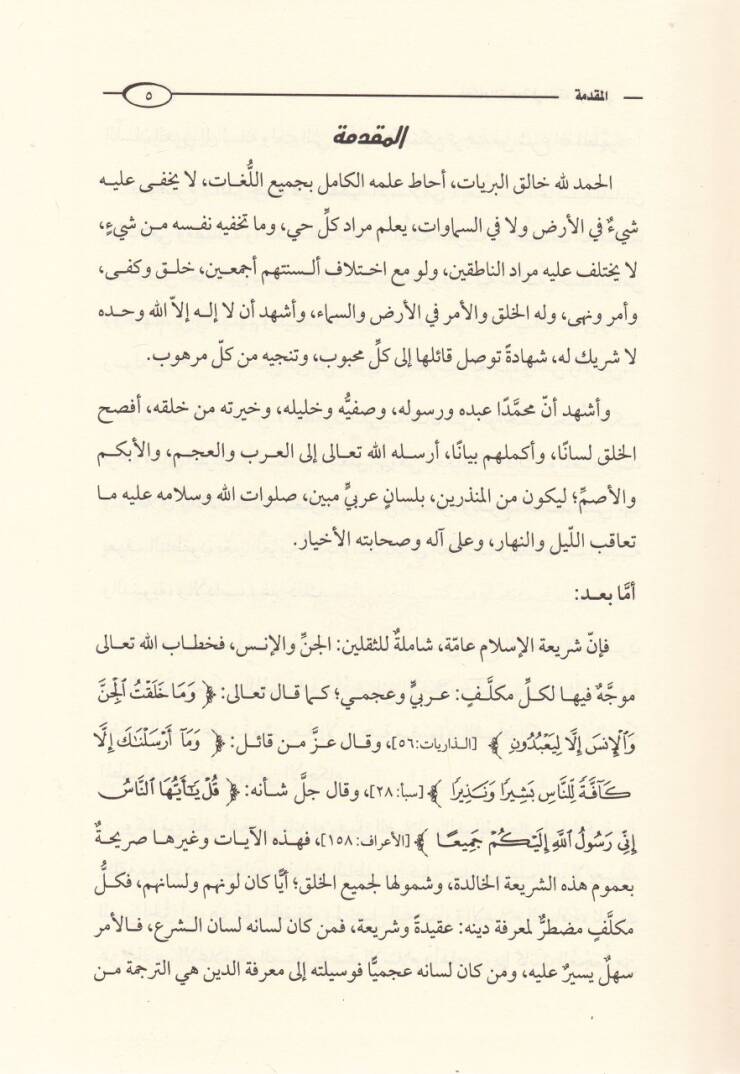 المقدمة ٥
المقدمة
الحمد لله خالق البريات، أحاط علمه الكامل بجميع اللُّغات، لا يخفى عليه
شيءٌ في الأرض ولا في السماوات، يعلم مراد كلِّ حي، وما تخفيه نفسه من شيءٍ،
لا يختلف عليه مراد الناطقين، ولو مع اختلاف ألسنتهم أجمعين، خلق وكفى،
وأمر ونهى، وله الخلق والأمر في الأرض والسماء، وأشهد أن لا إله إلاّ الله وحده
لا شريك له، شهادةً توصل قائلها إلى كلِّ محبوب، وتنجيه من كلّ مرهوب.
وأشهد أنّ محمَّدًا عبده ورسوله، وصفيُّه وخليله، وخيرته من خلقه، أفصح
الخلق لسانًا، وأكملهم بيانًا، أرسله الله تعالى إلى العرب والعجم، والأبكم
والأصمِّ؛ ليكون من المنذرين، بلسانٍ عربيٍّ مبين، صلوات الله وسلامه عليه ما
تعاقب اللّيل والنهار، وعلى آله وصحابته الأخيار.
أمَّا بعد:
فإنّ شريعة الإسلام عامّة، شاملةٌ للثقلين: الجنِّ والإنس، فخطاب الله تعالى
موجَّهٌ فيها لكلِّ مكلَّفٍ: عربيٍّ وعجمي؛ كما قال تعالى: ﴿ وَمَا خَلَقْتُ ٱلْجِنَّ
وَٱلْإِنسَ إِلَّا لِيَعْبُدُونِ ﴾ [الذاريات:٥٦]، وقال عزَّ من قائل: ﴿ وَمَآ أَرْسَلْنَٰكَ إِلَّا
كَآفَّةً لِّلنَّاسِ بَشِيرًا وَنَذِيرًا ﴾ [سبأ:٢٨]، وقال جلَّ شأنه: ﴿ قُلْ يَٰٓأَيُّهَا ٱلنَّاسُ
إِنِّي رَسُولُ ٱللَّهِ إِلَيْكُمْ جَمِيعًا ﴾ [الأعراف:١٥٨]، فهذه الآيات وغيرها صريحةٌ
بعموم هذه الشريعة الخالدة، وشمولها لجميع الخلق؛ أيًّا كان لونهم ولسانهم، فكلُّ
مكلَّفٍ مضطرٌّ لمعرفة دينه: عقيدةً وشريعة، فمن كان لسانه لسان الشرع، فالأمر
سهلٌ يسيرٌ عليه، ومن كان لسانه عجميًّا فوسيلته إلى معرفة الدين هي الترجمة من